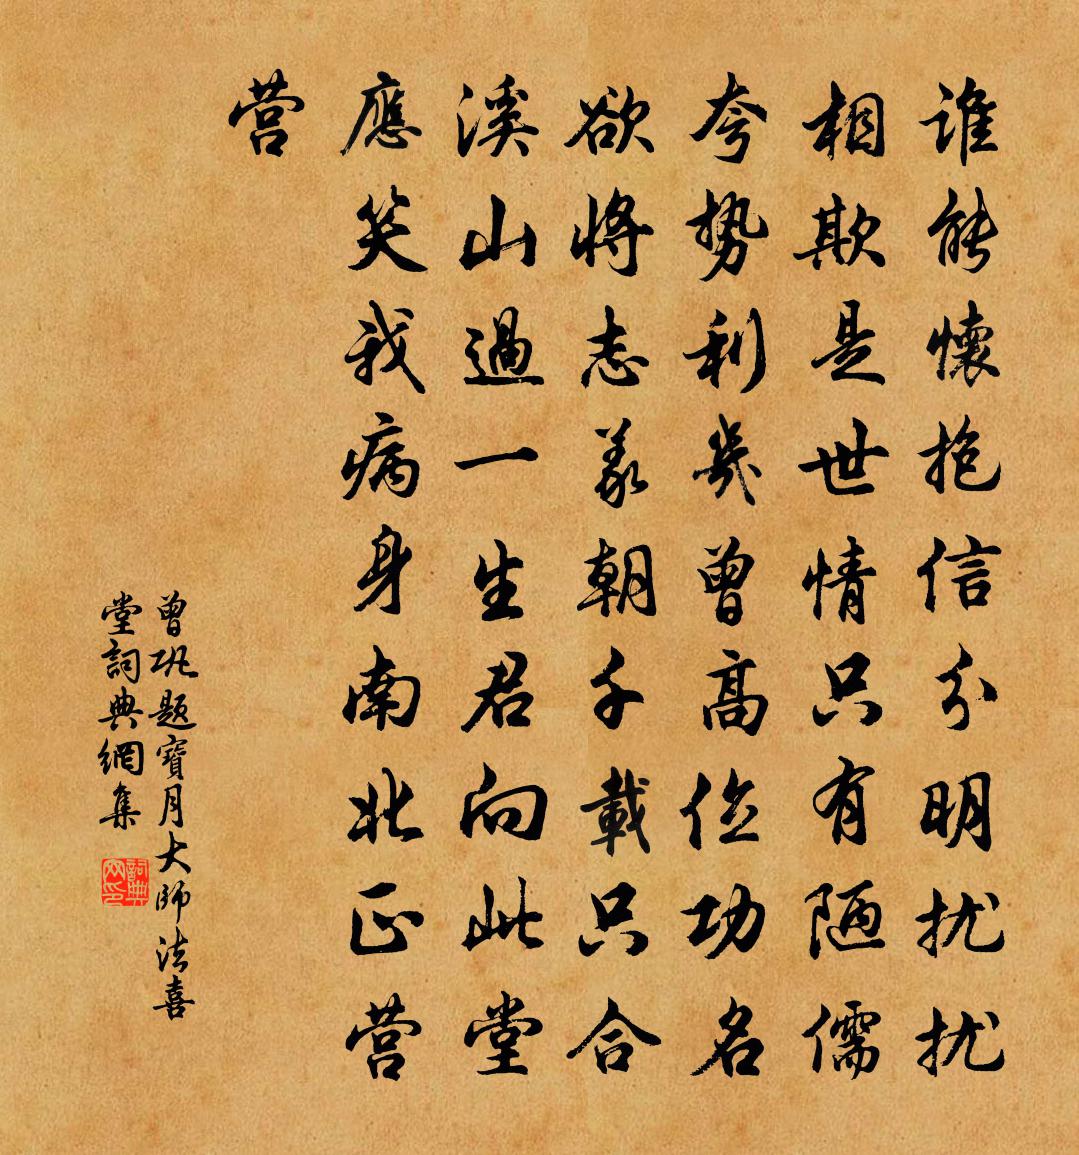 谁能懷抱信分明扰扰
相欺是世情只有陋儒
夸势利㡬曾高位功名
欲将志义朝千載只合
溪山過一生君向此堂
應笑我病身南北正营
营
曾巩题寶月大師法喜
堂詞典網集
詞典网印